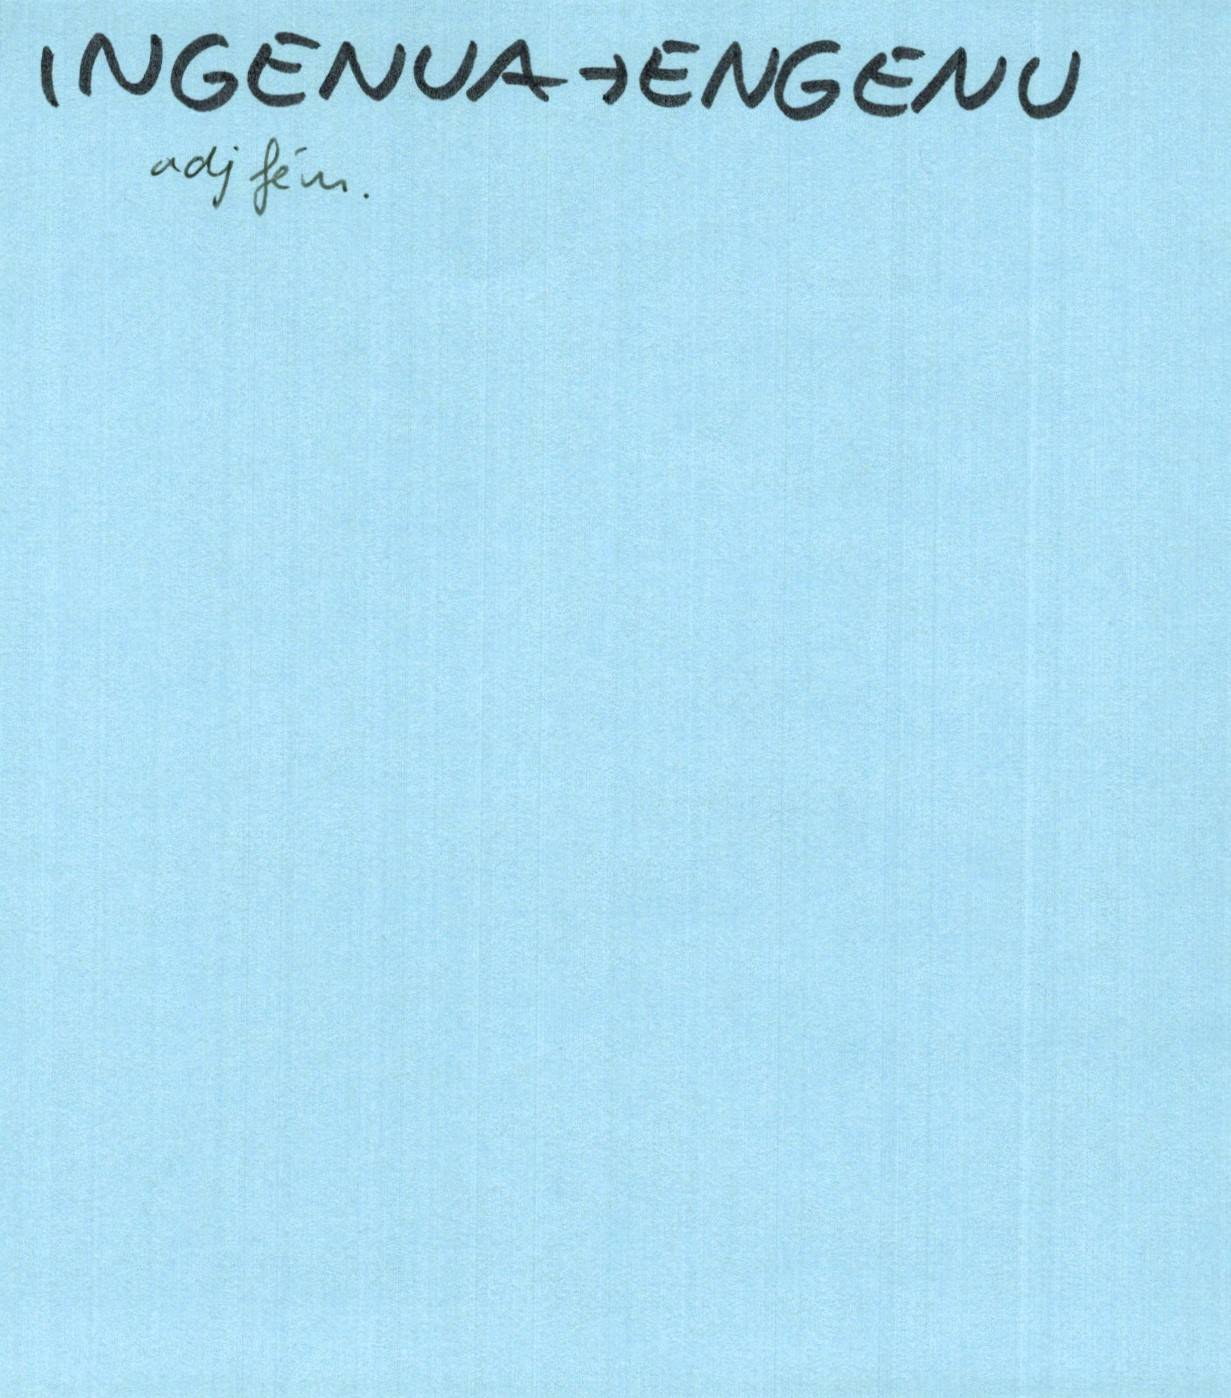 INGENUA→ENGENU
adj fém.